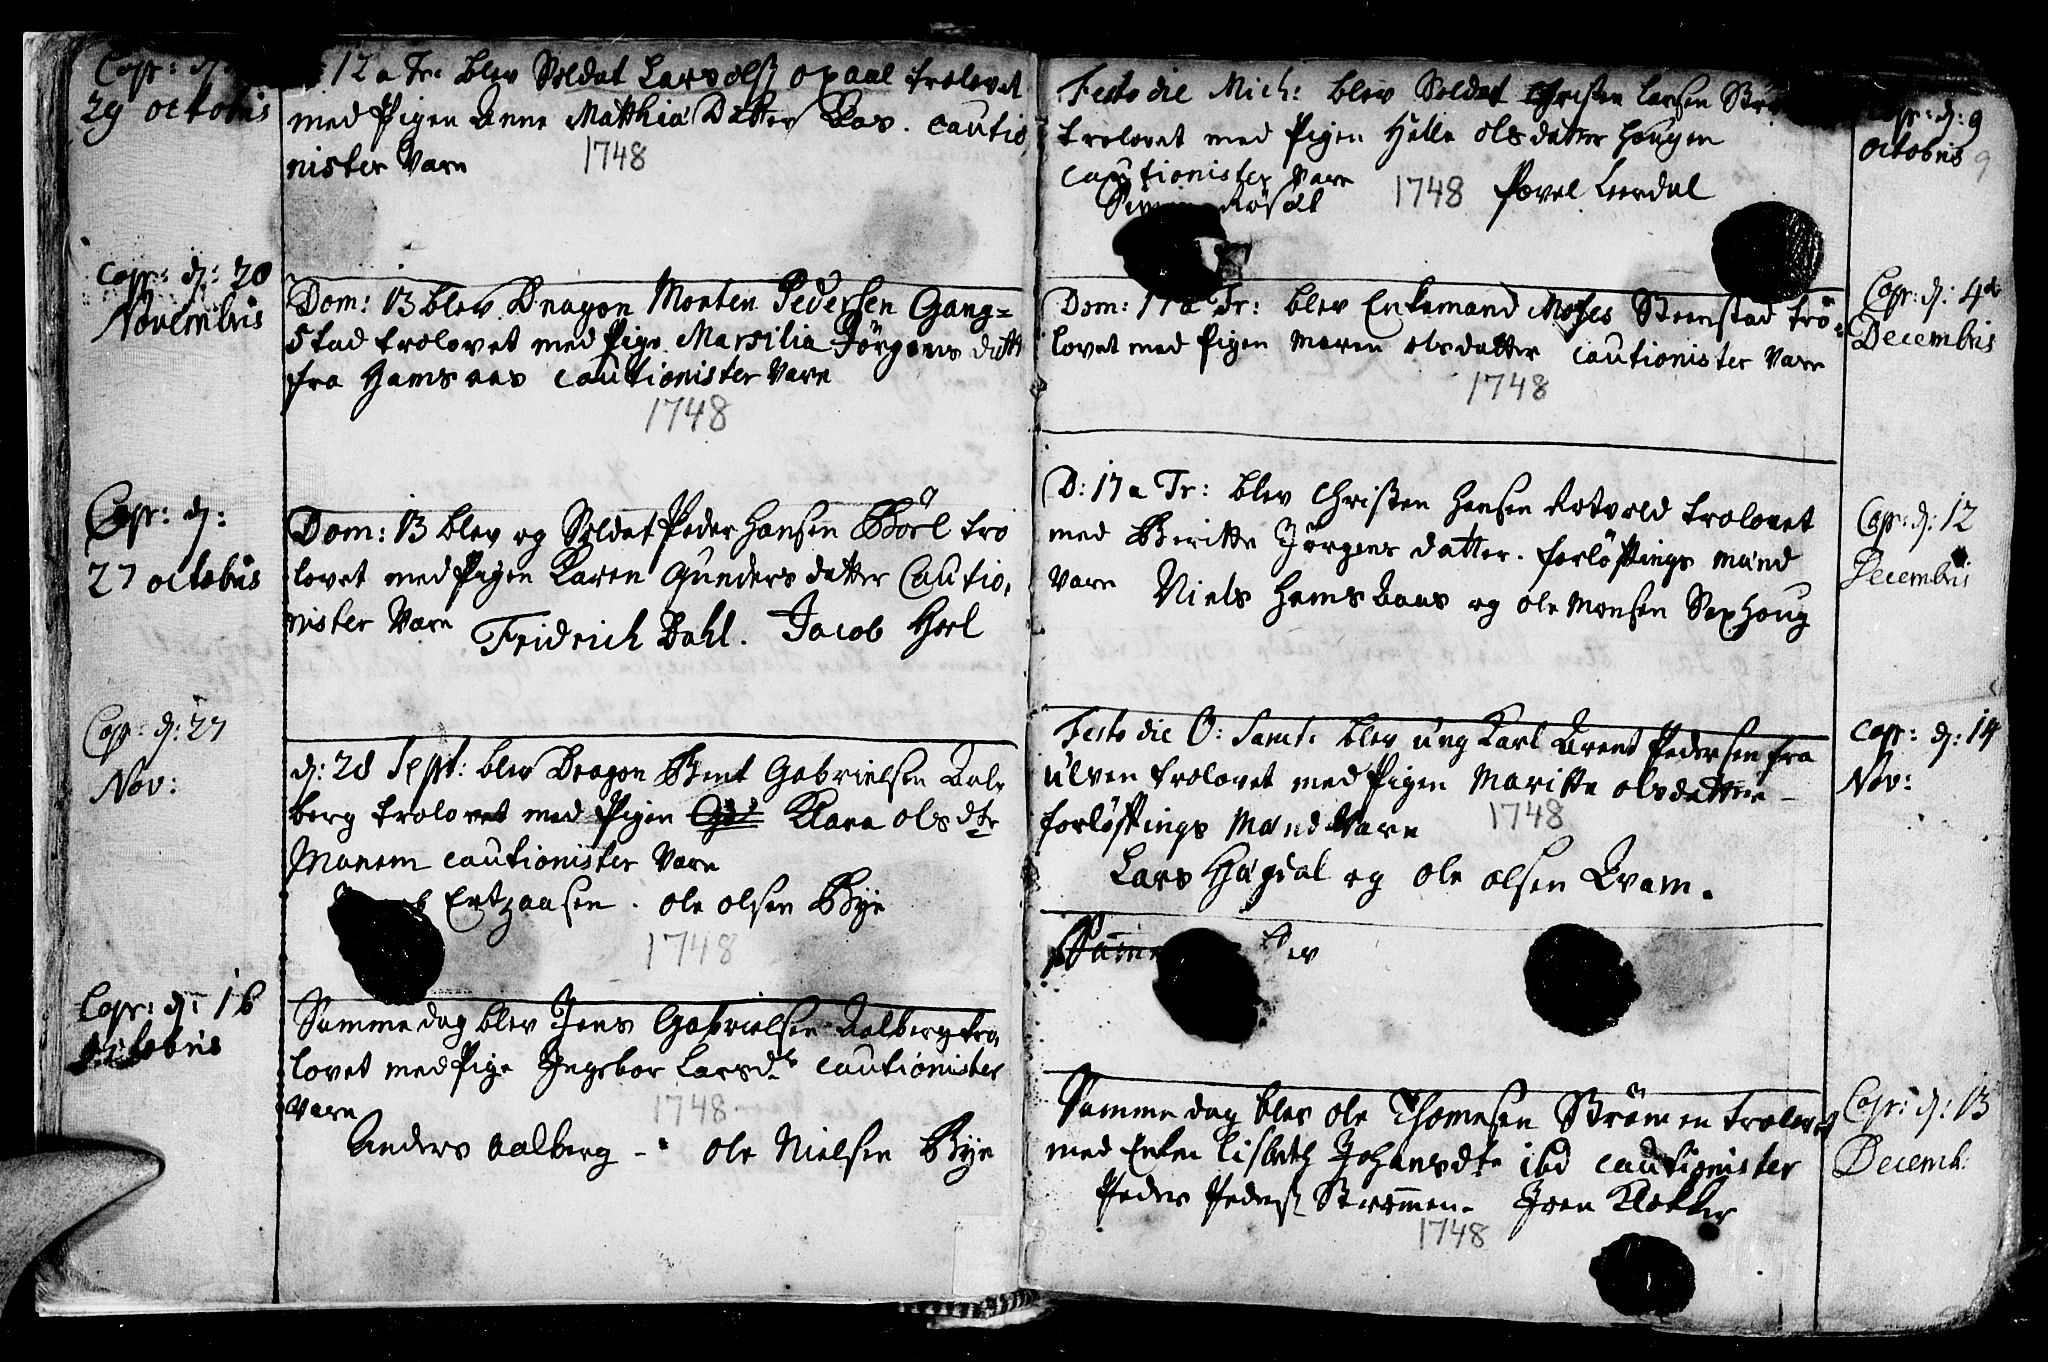 Cop: d:
29 octobris
12 a Tr: blev Soldat Lars olss opaal trolovet
med Pigen Anne Matthiæ Datter Aas. Cautio,
nister Vare
1748
Cop: d: 20
Novembris
Dom: 13 blev Dragon Morten Pedersen Gang=
stad trolovet med Pige Marsilia Jörgens datt
fra Hams aas cautionister Vare
1748
Cop: d:
27 octobris
Dom: 13 blev og Soldat Peder Hansen Börl tro
lovet med Pigen Karen Gunders datter Cautio,
nister Vare Fridrich Dahl. Jacob Horl
Cop: d: 27
Nov:
d: 28 Sept: blev Dragon Bent Gabrielsen Aal,
berg trolovet med Pigen Klara olsdtr
Manem cautionister Vare
Ertzaasen. ole olsen Bye
1748
Cop: d: 16
octobris
Samme dag blev Jens Gabrielsen Aalberg tro,
lovet med Pige Ingebor Larsdtr cautionister
Vare
1748
Anders aalberg - ole Nielsen Bye
Festo die Mich: blev Soldat Christen Larsen
trolovet med Pigen Helle olsdatter Hougen
cautionister Vare
1748 Povel Leerdal
Cop: d: 9
octobris 9
Dom: 17 a Tr: blev Enkemand Moses Steenstad tro=
lovet med Pigen Maren olsdatter cautionister Vare
1748
Cop: d: 4de
Decembris
D: 17 a Tr: blev Christen Hansen Rotvold trolovet
med Beritte Jörgens datter. forlöftings mænd
Vare Niels Hams Aaas og ole Monsen Saxhoug
Cop: d: 12
Decembris
Festo die O: Sanct: blev ung Karl Arent Pedersen fra
ulven trolovet med Pigen Maritte olsdatter
forlöftings Mænd Vare
1748
Lars Hægdal og ole olsen Kvam.
Cop: d: 14
Nov:
Samme
Samme dag blev ole Thomesen Strömen trolovet
med Enken Lisbeth Johansdtr ibd cautionister
Peder Peders Strömmen. Joen Klokker
1748
Cop: d: 13
Decemb: